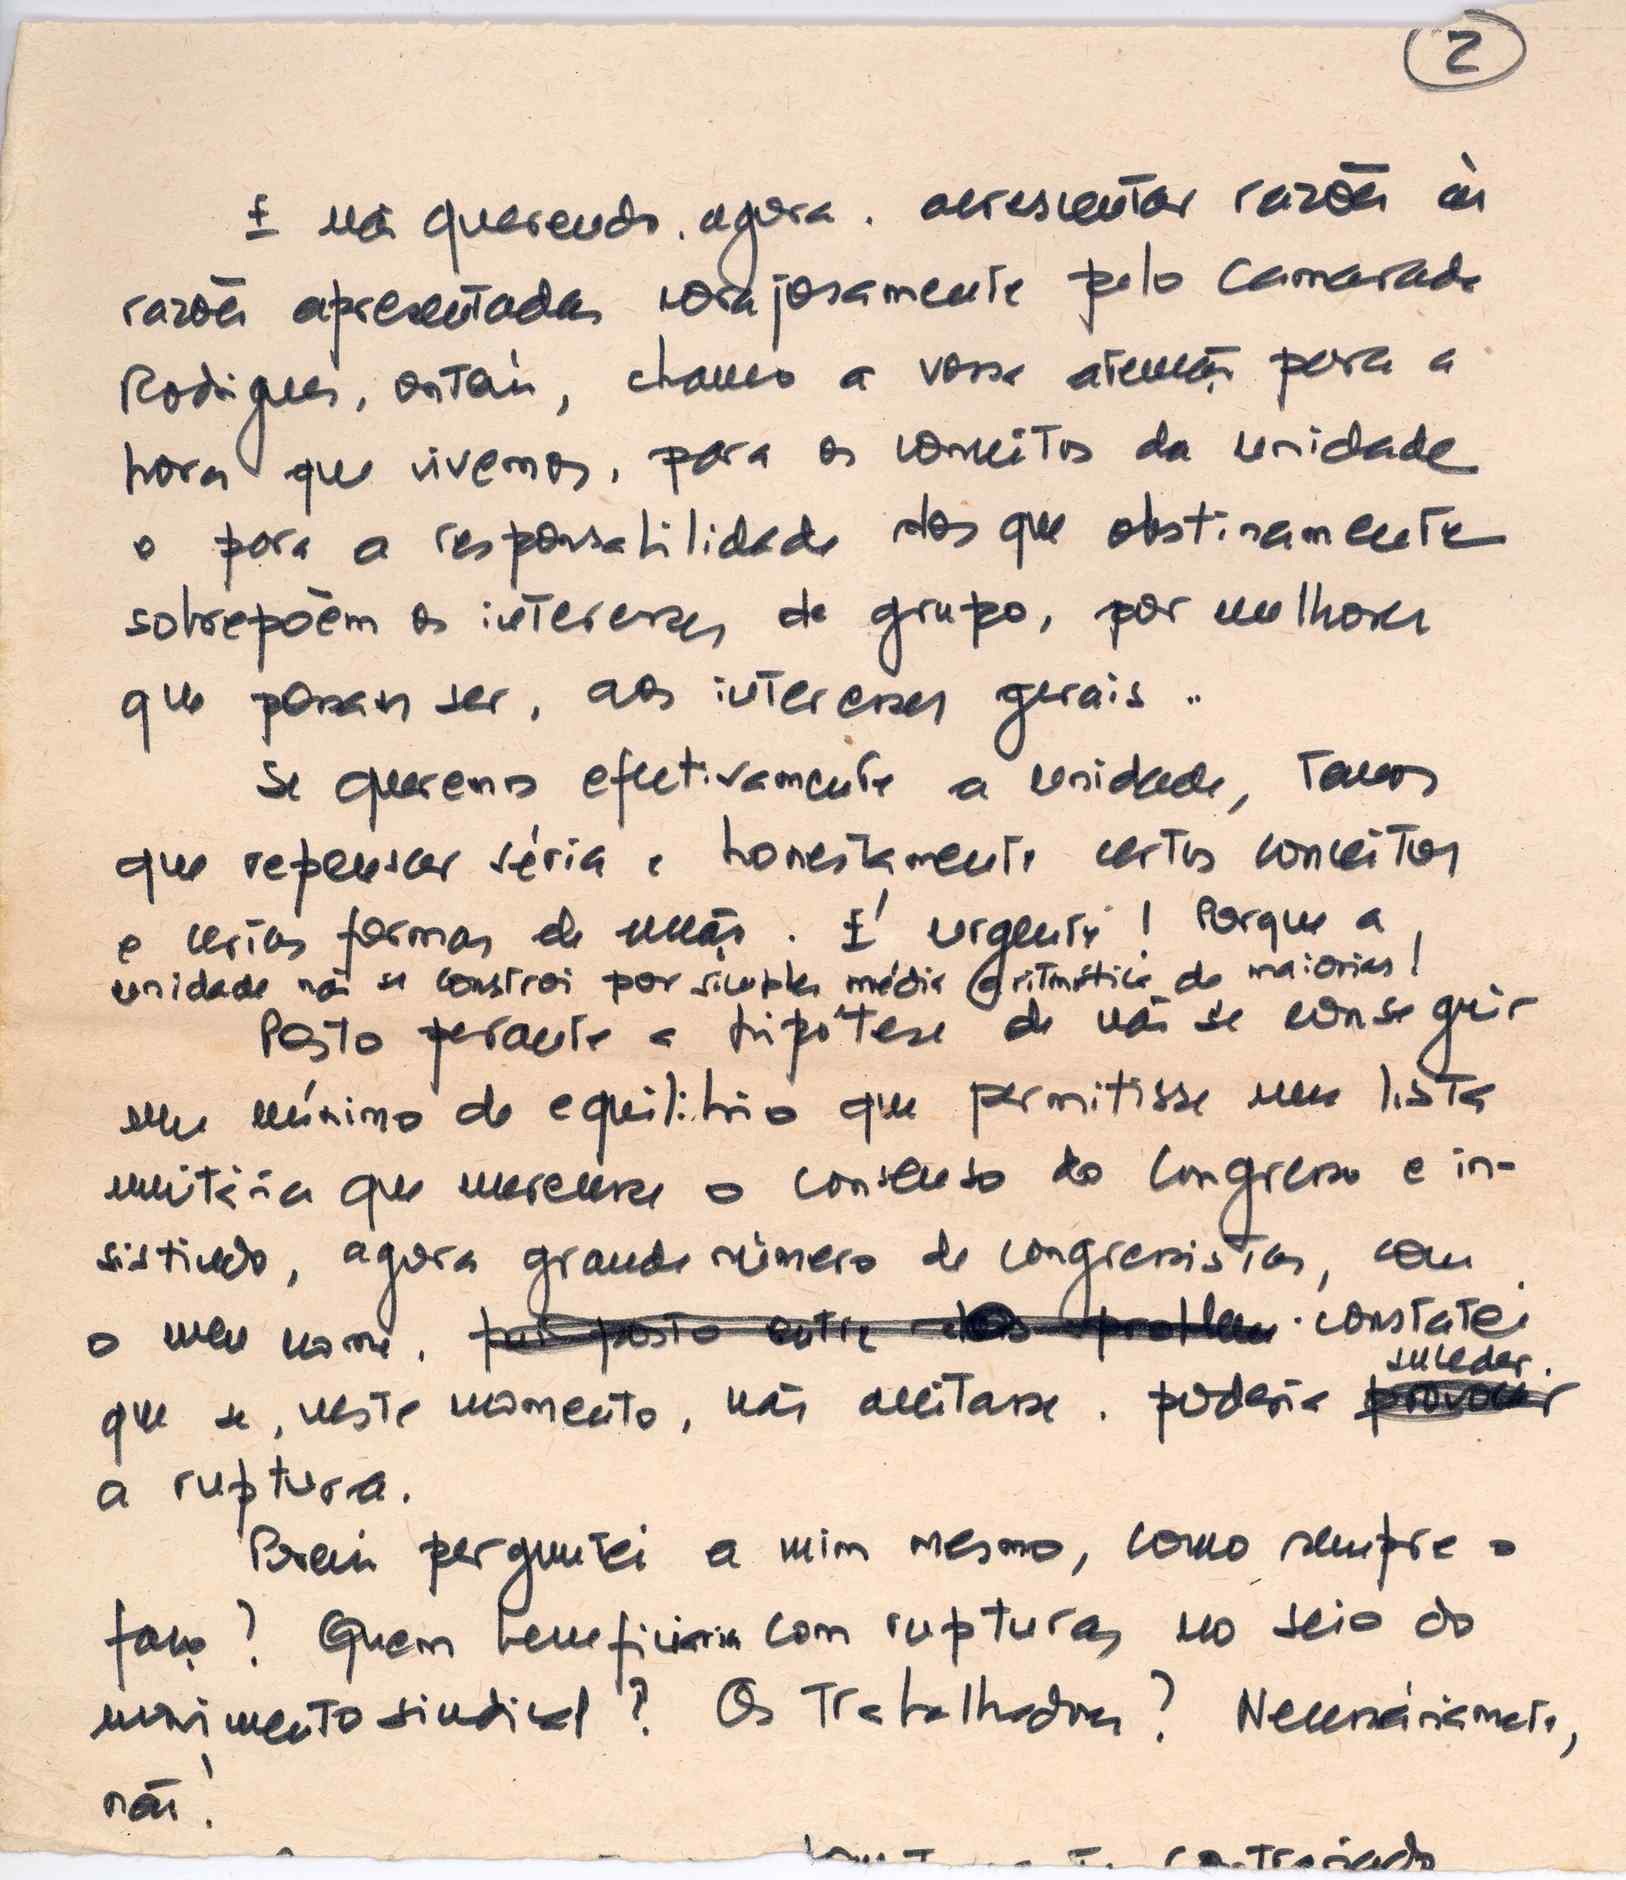 2
E não querendo, agora, acrescentar razões às
razões apresentadas corajosamente pelo Camarada
Rodrigues, ontem, chamo a vossa atenção para a
hora que vivemos, para os conceitos da unidade
e para a responsabilidade dos que obstinamente
sobrepõem os interesses de grupo, por melhores
que possam ser, aos interesses gerais..
Se queremos efectivamente a unidade, temos
que repensar séria e honestamente certos conceitos
e certas formas de acção. É urgente! Porque a
unidade não se constroi por simples média aritmética de maiorias!
Posto perante a hipótese de não se conseguir
um mínimo de equilíbrio que permitisse uma lista
unitária que merecesse o consenso do Congresso e in-
sistindo, agora grande número de congressistas, com
o meu nome, fui posto entre dois problem constatei
suceder.
que se, neste momento, não aceitasse, poderia provocar
a ruptura.
Porém perguntei a mim mesmo, como sempre o
faço? Quem beneficiaria com rupturas no seio do
movimento sindical? Os Trabalhadores? Necessáriamente,
não!
contrariado